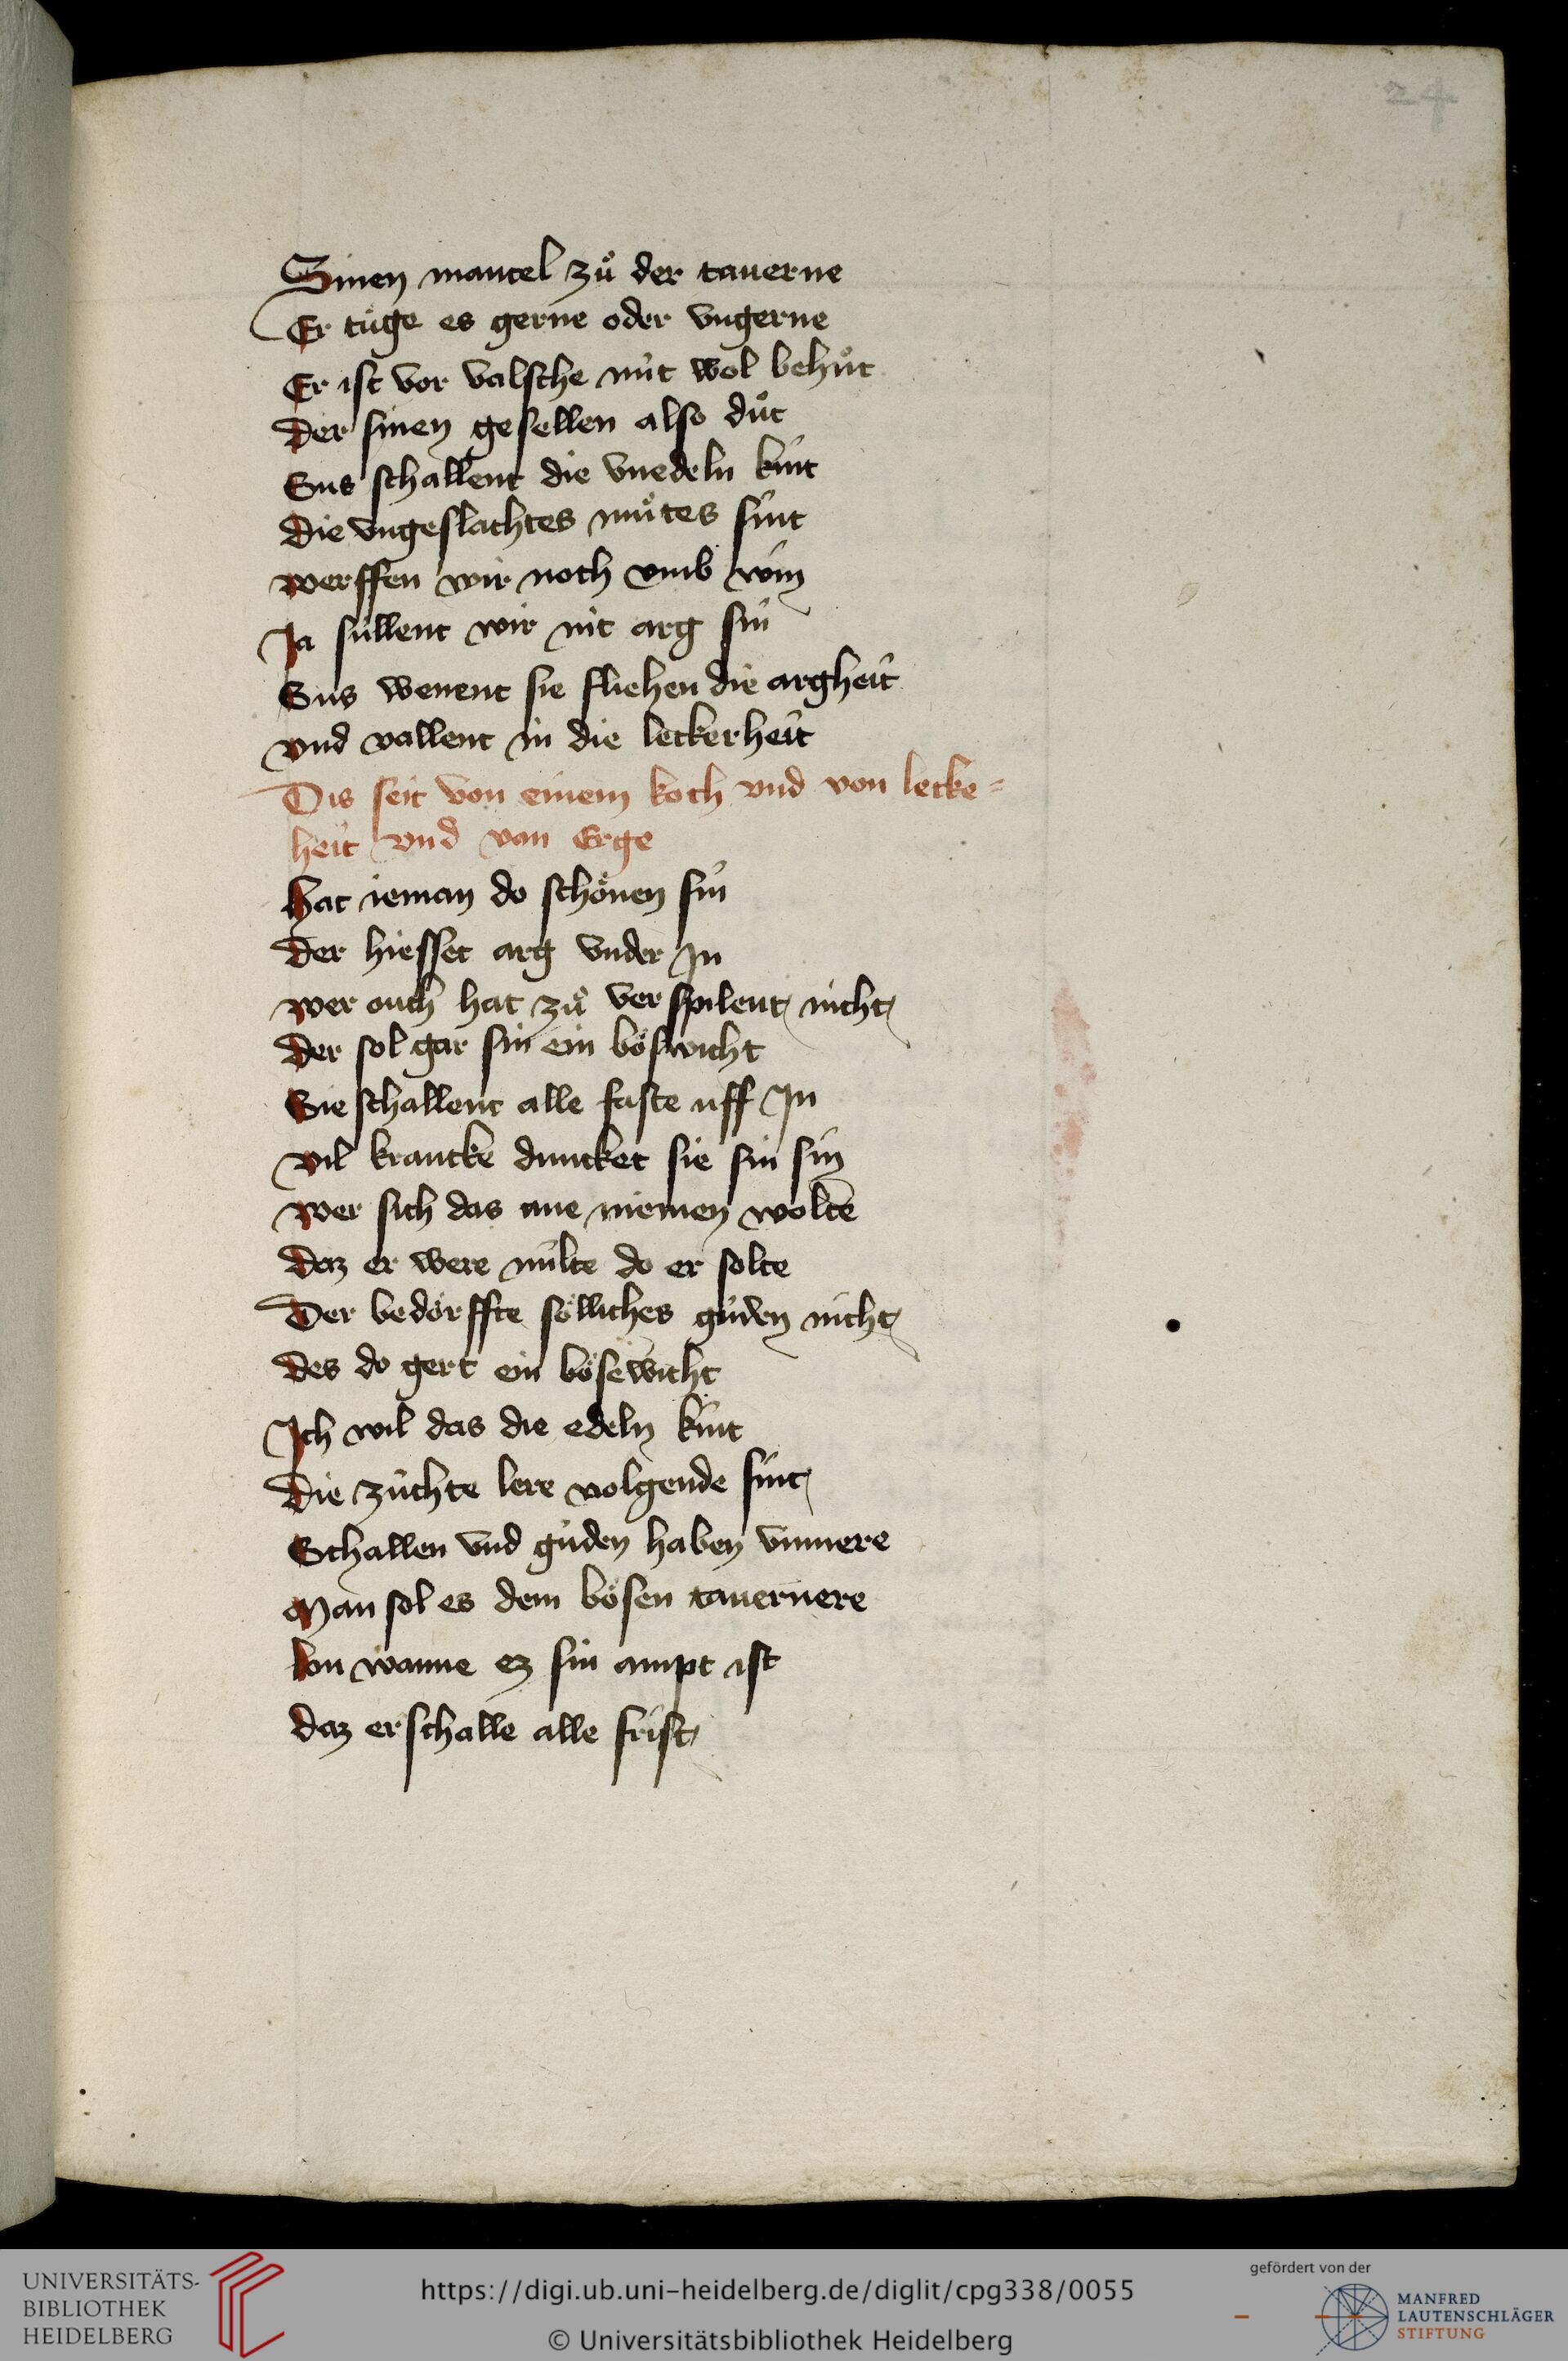 24
Sinen mantel zuͦ der tauerne
Er tuͤge es gerne oder vngerne
Er ist vor valsche nuͤt wol behuͦt
Der sinen gesellen also duͦt
Sus schallent die vnedeln kint
Die vngeslachtes muͦtes sint
Werffen wir noch vmb win
Ja suͤllent wir nit arg sin
Sus wenent sie fliehen die argheit
vnd vallent in die leckerheit
Dis seit von einem koch vnd von lecke=
heit vnd von Erge
Hat ieman do schoͤnen sin
Der hiesset arg vnder In
Wer ouch hat zuͦ verspilent nicht
Der sol gar sin ein boͤswicht
Sie schallent alle faste uff In
vil krancke duncket sie sin sin
Wer sich das ane niemen wolte
Daz er were milte do er solte
Der bedoͤrffte soͤlliches guͤden nicht
Des do gert ein boͤsewicht
Ich wil das die edeln kint
Die zuͤchte lere volgende sint
Schallen vnd guͤden haben vnmere
Man sol es dem boͤsen tauernere
lon wanne ez sin ampt ist
daz er schalle alle frist
UNIVERSITÄTS-
BIBLIOTHEK
HEIDELBERG
https://digi.ub.uni-heidelberg.de/diglit/cpg338/0055
© Universitätsbibliothek Heidelberg
gefördert von der
MANFRED
LAUTENSCHLÄGER
STIFTUNG